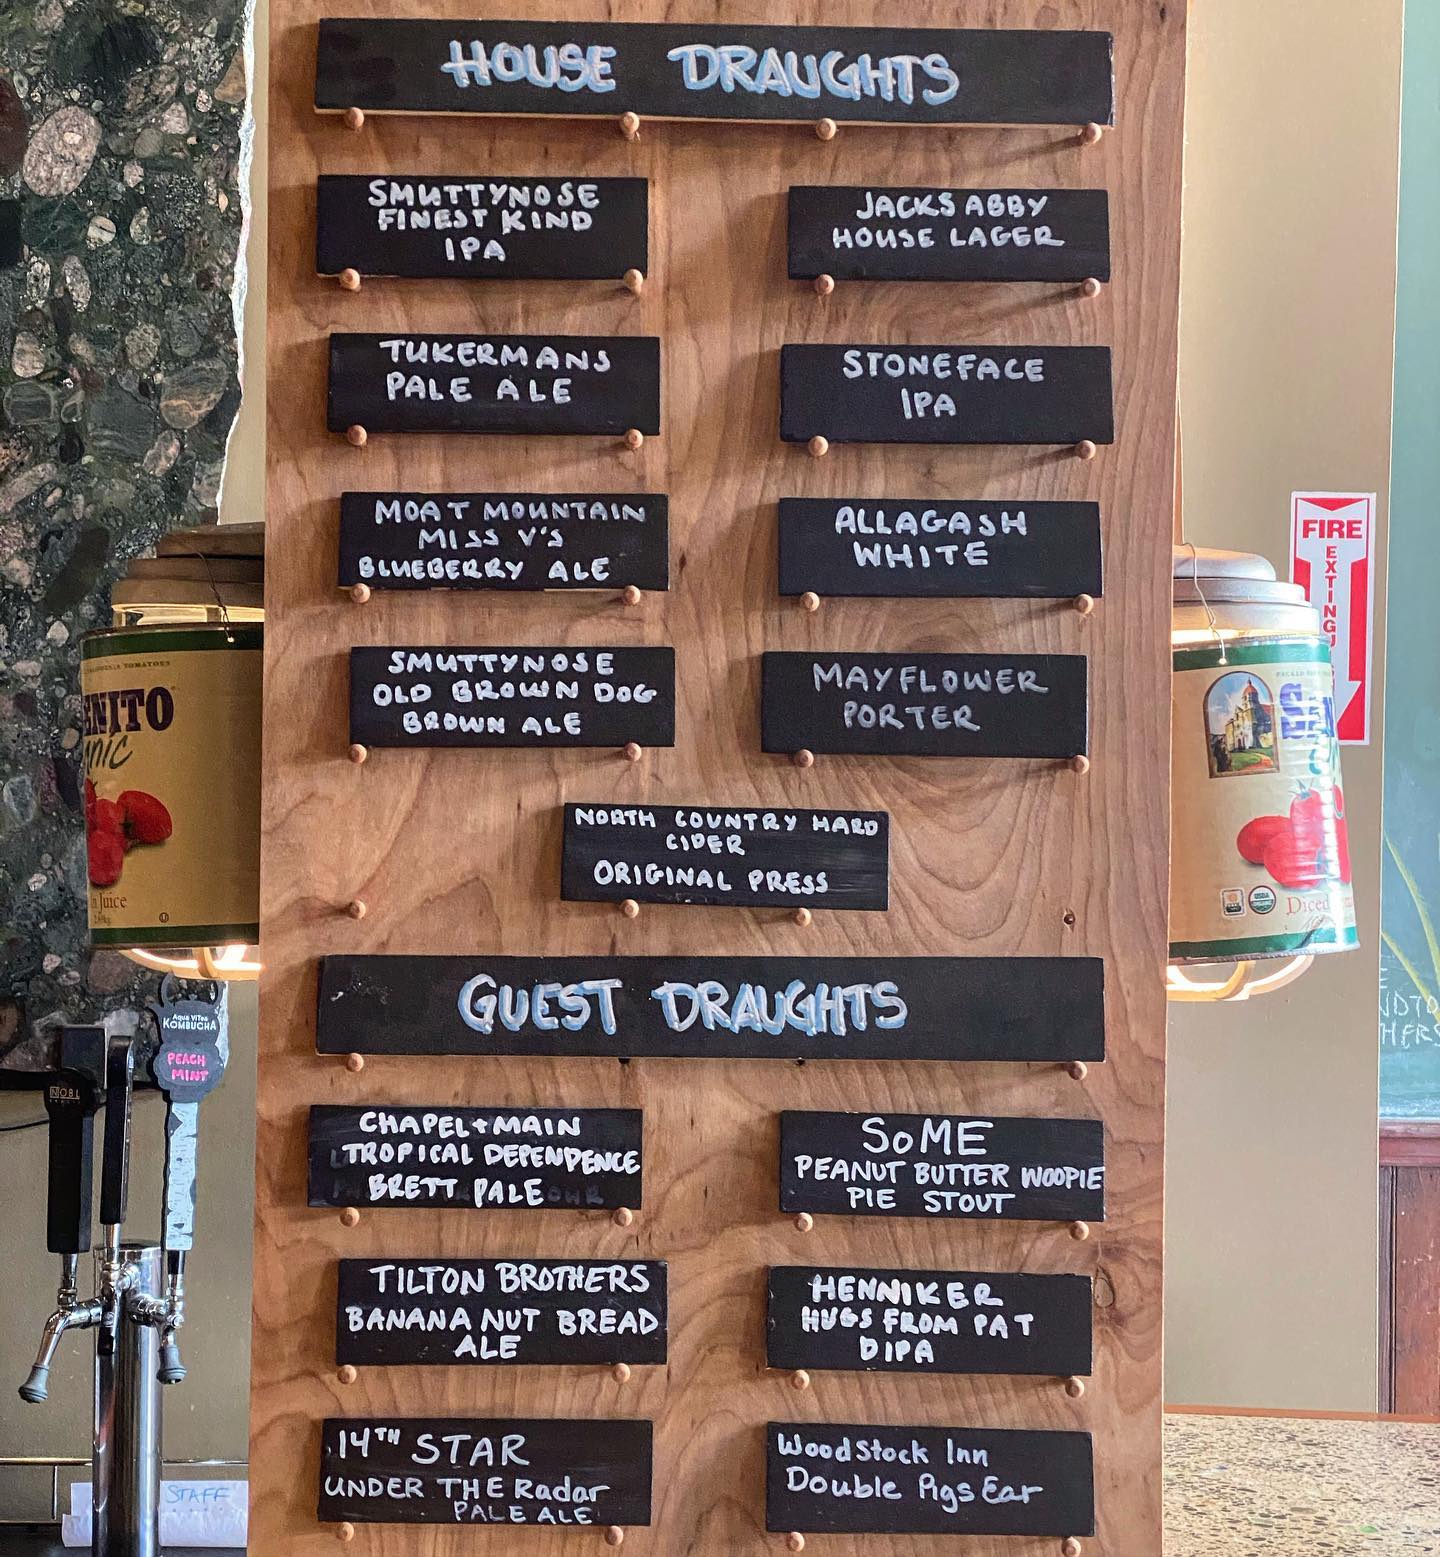 HOUSE DRAUGHTS
SMUTTYNOSE
FINEST KIND
IPA
JACKS ABBY
HOUSE LAGER
TUKERMANS
PALE ALE
STONEFACE
IPA
MOAT MOUNTAIN
MISS V'S
BLUEBERRY ALE
ALLAGASH
WHITE
SMUTTYNOSE
OLD BROWN DOG
BROWN ALE
MAYFLOWER
PORTER
NORTH COUNTRY HARD
CIDER
ORIGINAL PRESS
GUEST DRAUGHTS
CHAPEL + MAIN
TROPICAL DEPENDENCE
BRETT PALE
SoME
PEANUT BUTTER WOOPIE
PIE STOUT
TILTON BROTHERS
BANANA NUT BREAD
ALE
HENNIKER
HUGS FROM PAT
DIPA
14TH STAR
UNDER THE Radar
PALE ALE
Woodstock Inn
Double Pigs Ear
FIRE
EXTINGU
TOMATOES
ENITO
nic
n Juice
Diced
USDA
Aqua ViTea
KOMBUCHA
PEACH
MINT
NOBL
STAFF